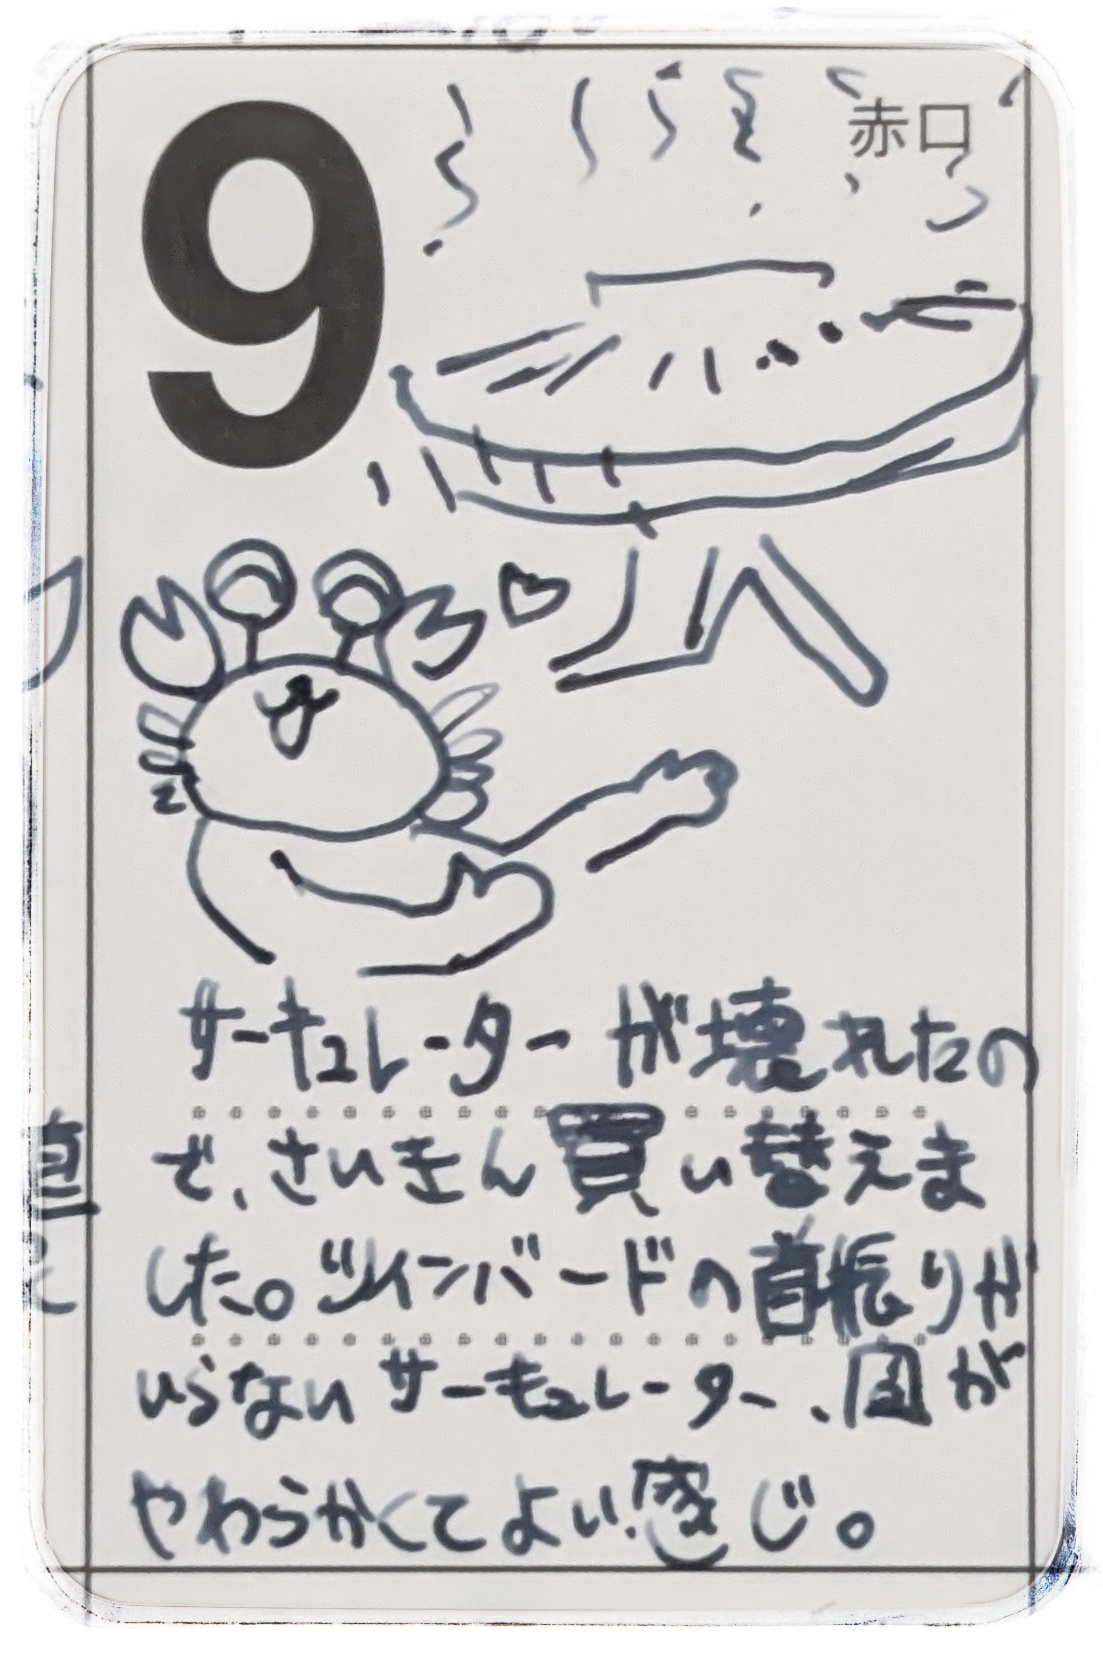 9
赤口
サーキュレーターが壊れたの
で、さいきん買い替えま
した。ツインバードの首振りが
いらないサーキュレーター、風が
やわらかくてよい感じ。